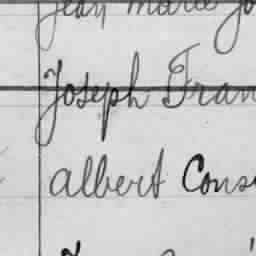 Jean Marie Jo
Joseph Fran
Albert Cons